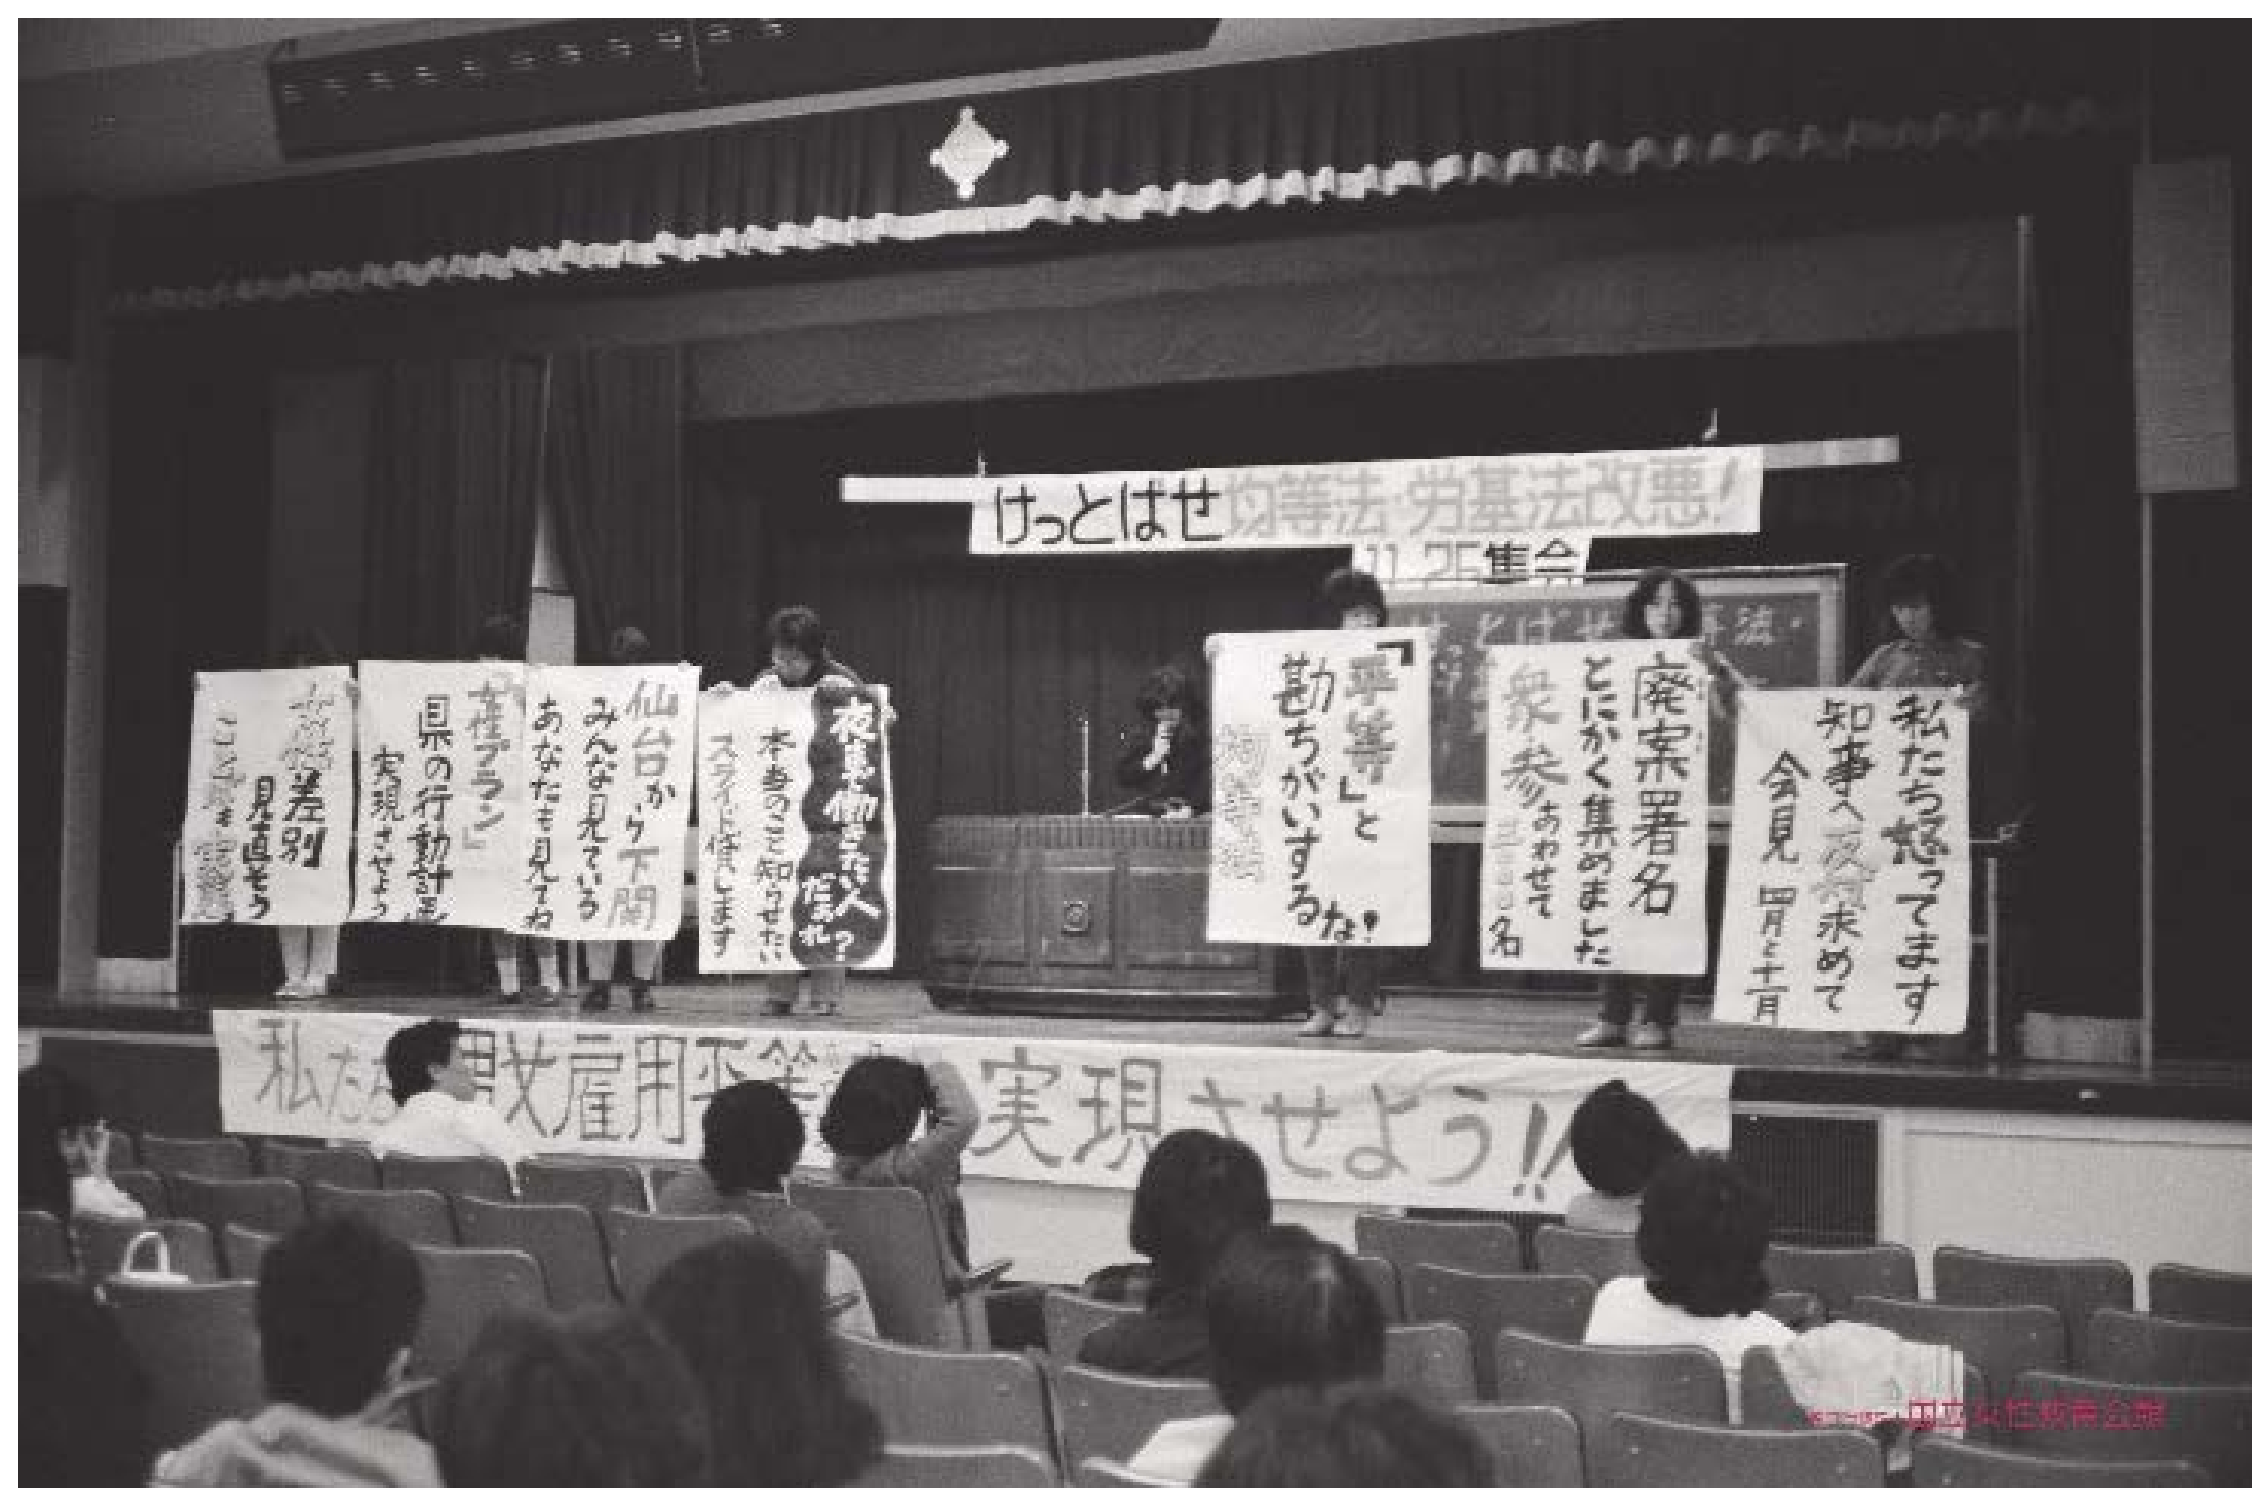 けっとばせ均等法・労基法改悪!
11.25集会
けとばせ
等法・
私たち怒ってます
知事へ反対求めて
会見 四月と十一月
廃案署名
とにかく集めました
衆・参あわせて
名
「平等」と
勘ちがいするな?
均等法
夜中まで働きたい人?だぁれ
本当のこと知らせたい
スライド作成します
仙台から下関
みんな見ている
あなたも見てね
プラン」
県の行動計画
実現させよう
差別
見直そう
私たち 男女雇用平等 実現させよう!!
国立女性教育会館